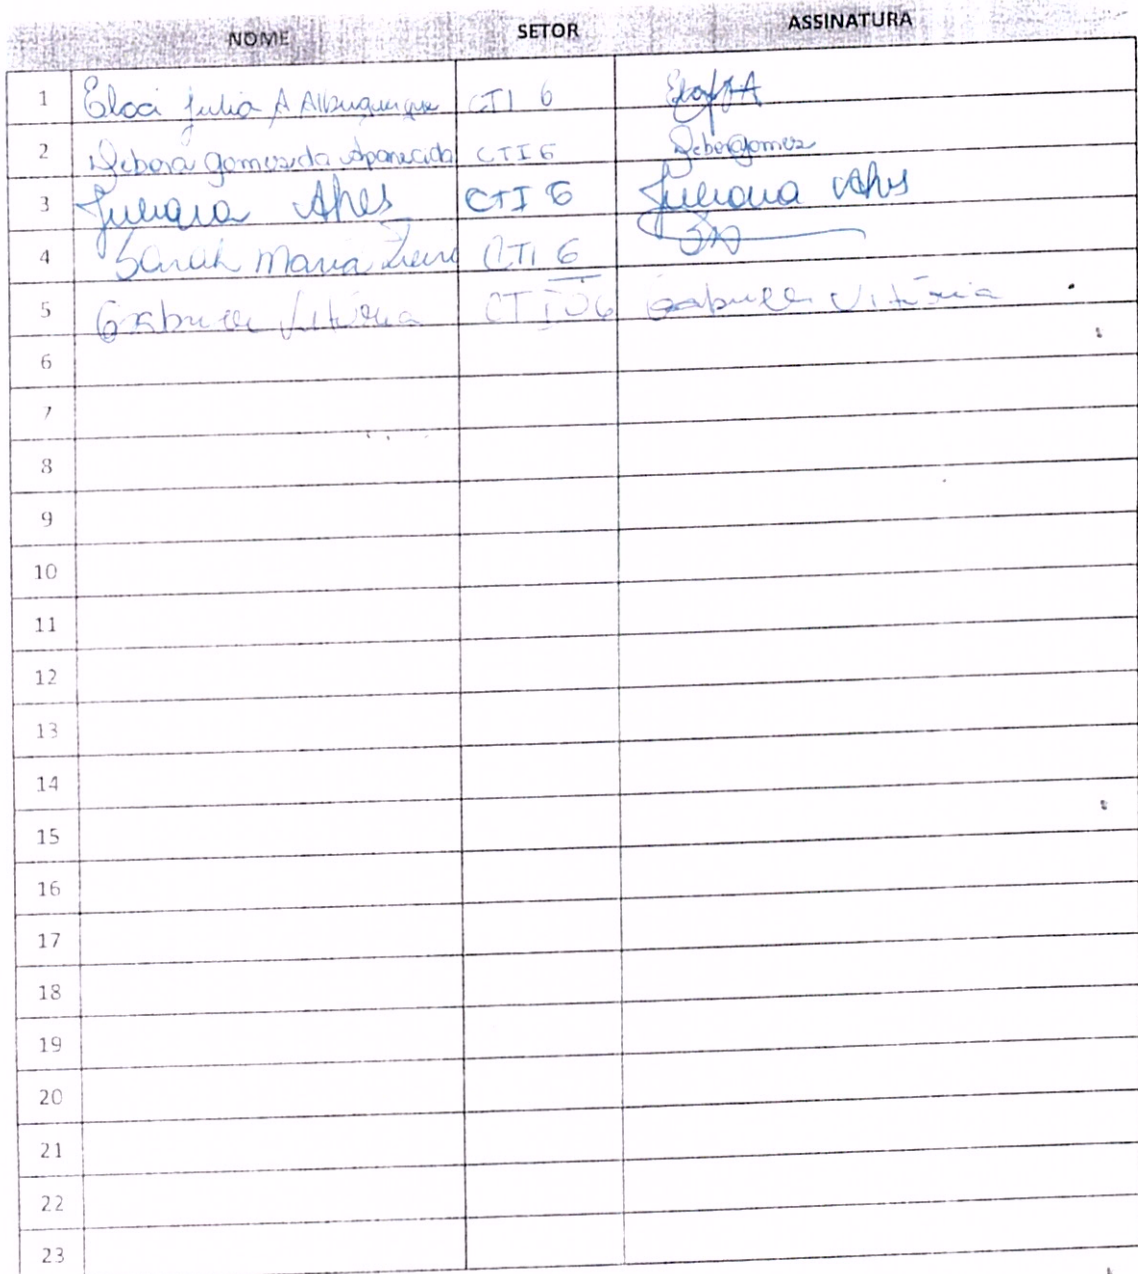 NOME SETOR ASSINATURA
1 Eloci Julia A Albuquerque CTI 6
2 Debora gomes da Aparecida CTI 6 Debora gomes
3 Juliana Alves CTI 6 Juliana Alves
4 Sarah Maria CTI 6
5 Gabriela Vitória CTI 06 Gabriela Vitória
6
7
8
9
10
11
12
13
14
15
16
17
18
19
20
21
22
23